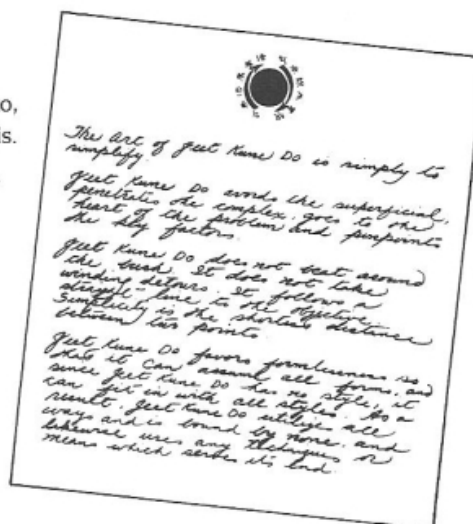 o,
is.
The Art of Jeet Kune Do is simply to
simplify.
Jeet Kune Do avoids the superficial,
penetrates the complex, goes to the
heart of the problem and pinpoints
the key factors.
Jeet Kune Do does not beat around
the bush. It does not take
winding detours. It follows a
straight line to the objective.
Simplicity is the shortest distance
between two points.
Jeet Kune Do favors formlessness so
that it can assume all forms, and
since Jeet Kune Do has no style, it
can fit in with all styles. As a
result, Jeet Kune Do utilizes all
ways and is bound by none, and
likewise uses any techniques or
means which serves it's end.